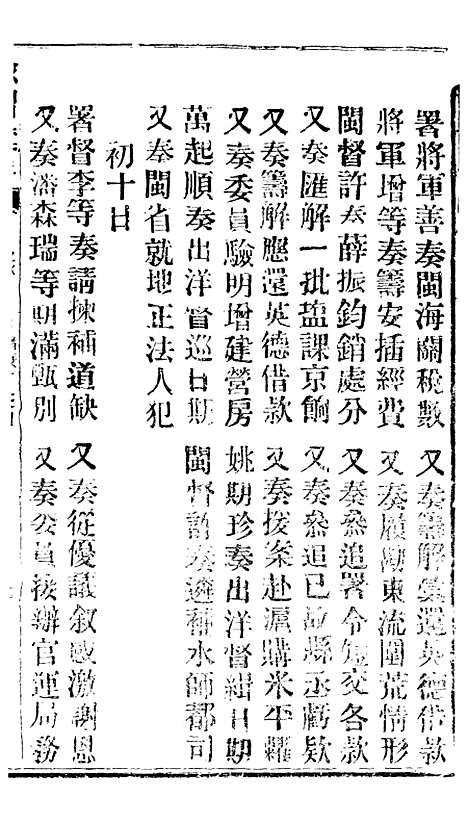 署將軍善奏閩海關稅數 又奏籌解彙還英德借款
將軍增等奏籌安插經費 又奏履勘東流圍荒情形
閩督許奏薛振鈞銷處分 又奏叅追署令短交各款
又奏匯解一批盐課京餉 又奏叅追已故縣丞虧欵
又奏籌解應還英德借款 又奏援案赴滬購米平糶
又奏委員驗明增建營房 姚期珍奏出洋督緝日期
萬起順奏出洋督巡日期 閩督許奏遴補水師都司
又奏閩省就地正法人犯
初十日
署督李等奏請揀補道缺 又奏從優議叙感激謝恩
又奏潘森瑞等期滿甄別 又奏委員接辦官運局務